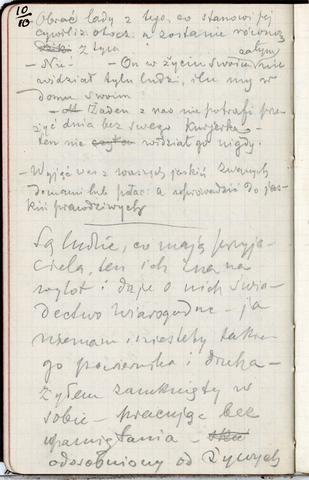 10
10
- Obrać lady z tego, co stanowi jej
cywiliz. otocz. a zostanie równoz
z tyra
całym
- Nie! - On w życiu swoim nie
widział tylu ludzi, ilu my w
domu swoim
- Żaden z nas nie potrafi prze-
żyć dnia bez swego Kuryerka -
ten nie czytał widział go nigdy.
- Wyjąć was z waszych jaskiń zwanych
domami lub pałac. a zaprowadzić do jas-
kiń prawdziwych
Są ludzie, co mają przyja-
ciela, ten ich zna na
wylot i daje o nich świa-
dectwo wiarogodne - ja
nie mam niestety take-
go powiernika i druha -
Żyłem zamknięty w
sobie - pracując bez
upamiętania -
odosobniony od żywych